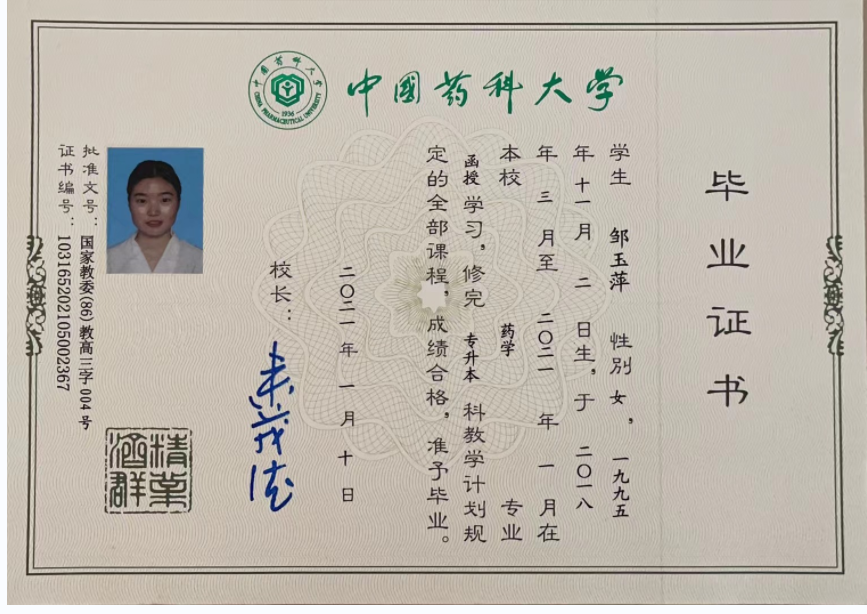 中国药科大学
中国药科大学
CHINA PHARMACEUTICAL UNIVERSITY
1936
毕业证书
学生 邹玉萍 性别 女，一九九五
年 十一 月 二 日生，于 二〇一八
年 三 月至 二〇二一 年 一 月在
本校 药学 专业
函授 学习，修完 专升本 科教学计划规
定的全部课程，成绩合格，准予毕业。
二〇二一 年 一 月 十 日
校长：
批准文号：国家教委(86)教高三字004号
证书编号：103165202105002367
精业
济群